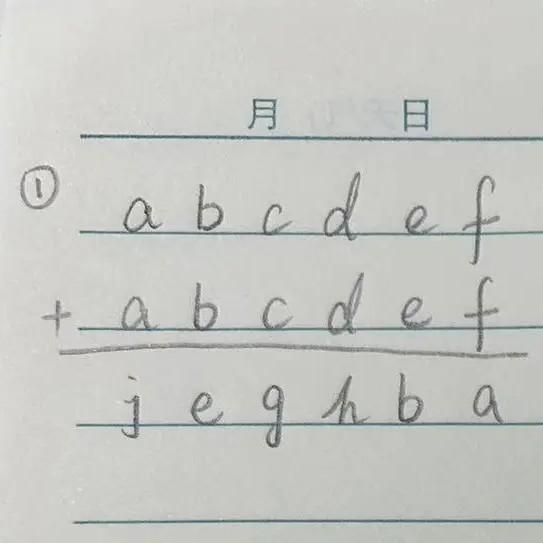 月 日
① a b c d e f
+ a b c d e f
j e g h b a